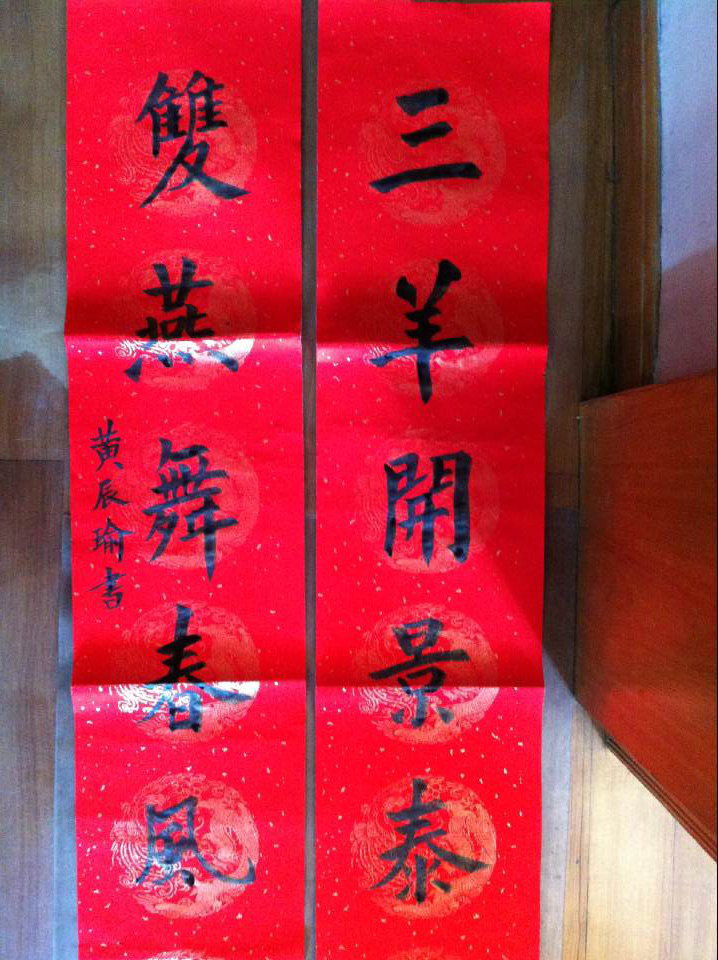 三羊開景泰
雙燕舞春風
黄辰瑜書